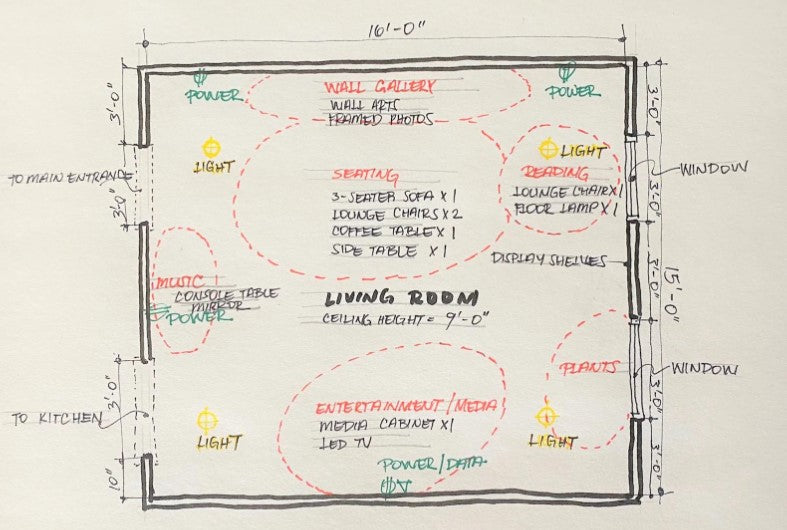 16'-0"
POWER
WALL GALLERY
WALL ARTS
FRAMED PHOTOS
POWER
3'-0"
3'-0"
LIGHT
LIGHT
TO MAIN ENTRANCE
3'-0"
SEATING
3-SEATER SOFA x 1
LOUNGE CHAIRS x 2
COFFEE TABLE x 1
SIDE TABLE x 1
READING
LOUNGE CHAIR x 1
FLOOR LAMP x 1
WINDOW
3'-0"
DISPLAY SHELVES
3'-0"
15'-0"
MUSIC
CONSOLE TABLE
MIRROR
POWER
LIVING ROOM
CEILING HEIGHT = 9'-0"
PLANTS
WINDOW
3'-0"
TO KITCHEN
3'-0"
ENTERTAINMENT/MEDIA
MEDIA CABINET x1
LED TV
LIGHT
LIGHT
POWER/DATA
10"
3'-0"